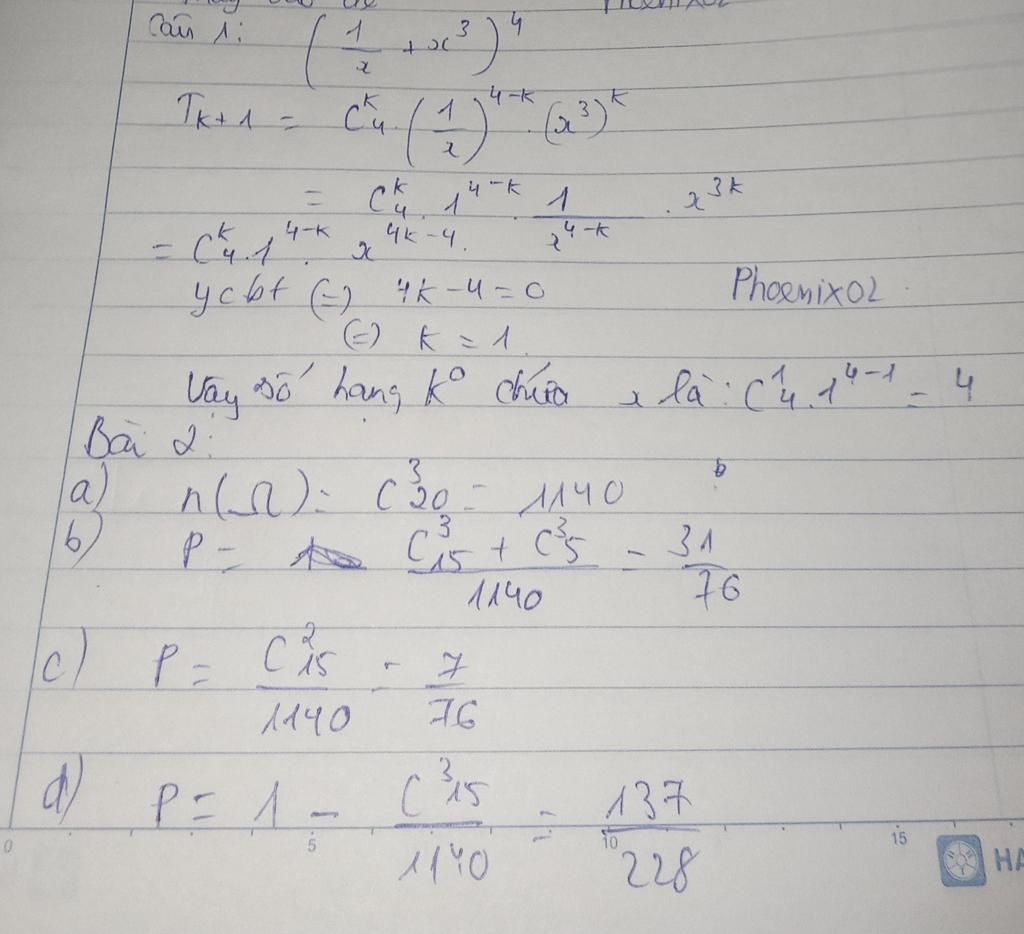 Câu 1: (1/x + x³)⁴
T_{k+1} = C⁠^k_4 . (1/x)^{4-k} . (x³)^k
= C^k_4 . 1^{4-k} . 1/x^{4-k} . x^{3k}
= C^k_4 . 1^{4-k} . x^{4k-4}.
ycbt (=) 4k-4=0
Phoenix02
(=) k = 1.
Vậy số hạng k⁰ chứa x là: C^1_4 . 1^{4-1} = 4
Bài 2:
a) n(Ω) = C^3_20 = 1140
b) P = (C^3_15 + C^3_5)/1140 = 31/76
c) P = C^2_15/1140 = 7/76
d) P = 1 - C^3_15/1140 = 137/228
0 5 10 15
HA